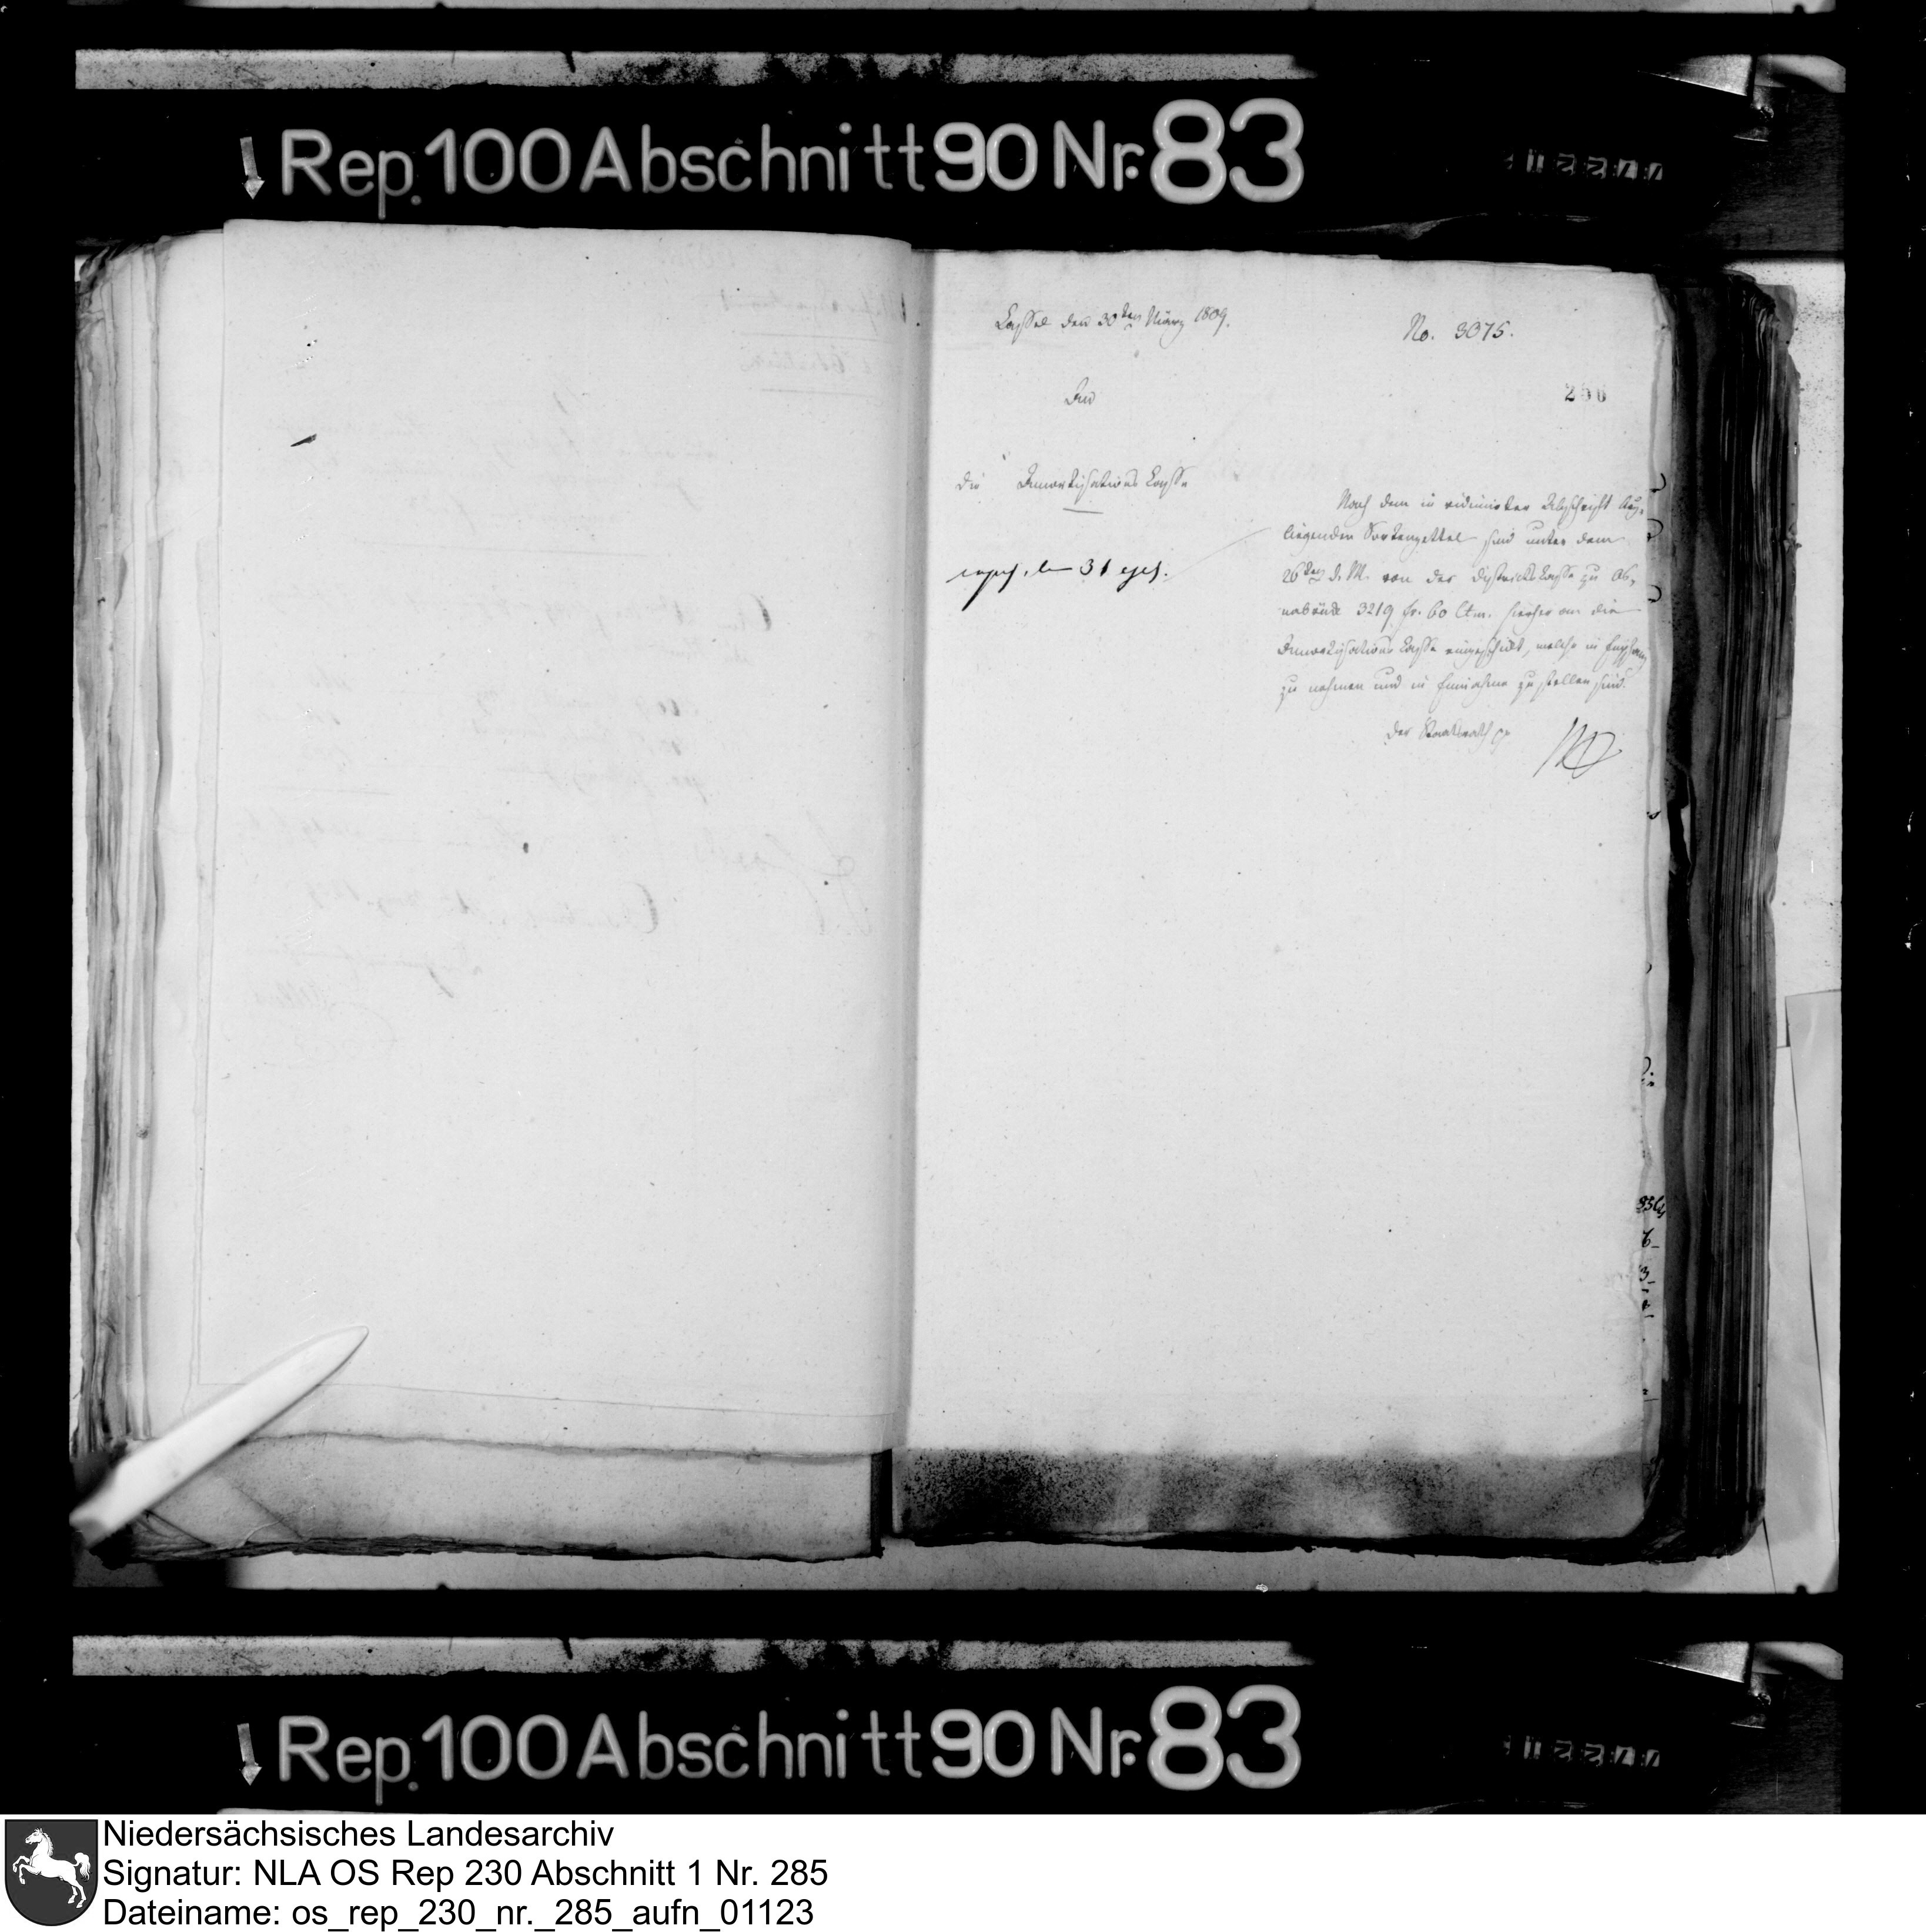 Rep. 100 Abschnitt 90 Nr. 83
Cassel den 30ten März 1809.
No. 3075.
An
die Amortisations Casse
Nach dem in vidimirter Abschrift An-
liegenden Sortenzettel sind unter dem
26ten d. M. von der Districts Casse zu Os-
nabrück 3219 fr. 60 Ctm. hierher an die
Amortisations Casse eingeschickt, welche in Empfang
zu nehmen und in Einnahme zu stellen sind.
Der Staatsrath
den 31
Rep. 100 Abschnitt 90 Nr. 83
Niedersächsisches Landesarchiv
Signatur: NLA OS Rep 230 Abschnitt 1 Nr. 285
Dateiname: os_rep_230_nr._285_aufn_01123